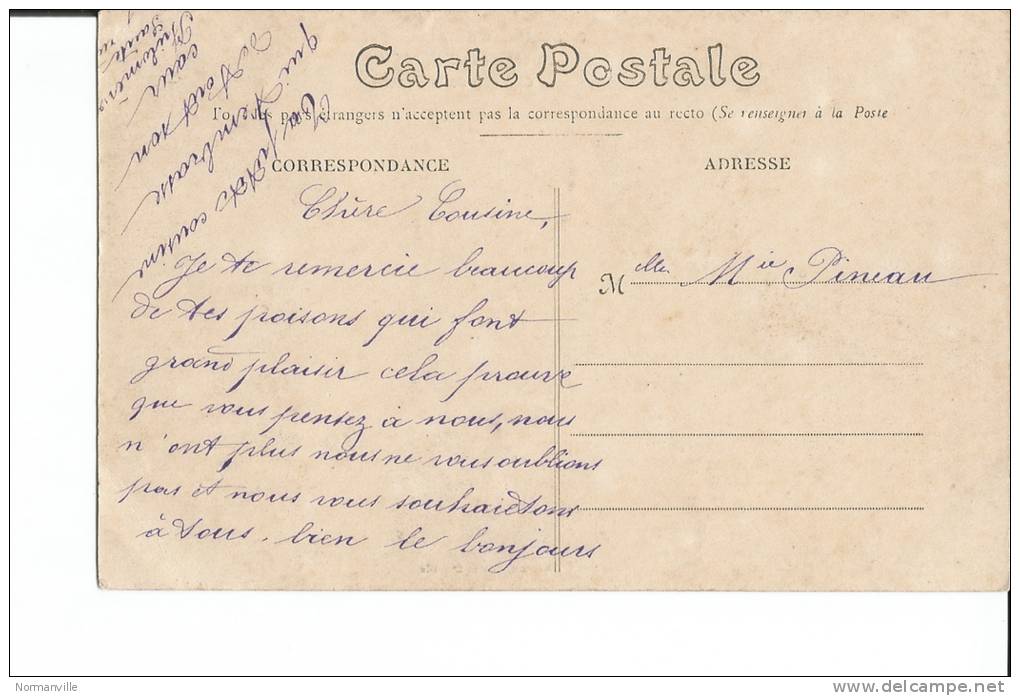 Carte Postale
Tous les pays étrangers n'acceptent pas la correspondance au recto (Se renseigner à la Poste
CORRESPONDANCE
ADRESSE
Chère Cousine,
Je te remercie beaucoup
de tes poisons qui font
grand plaisir cela prouve
que vous pensez à nous, nous
n'ont plus nous ne vous oublions
pas et nous vous souhaietons
à tous. bien le bonjours
Ta petite cousine
qui t'embrasse
de tout son
cœur
Philomène
M elle Mie Pineau
Normanville
www.delcampe.net